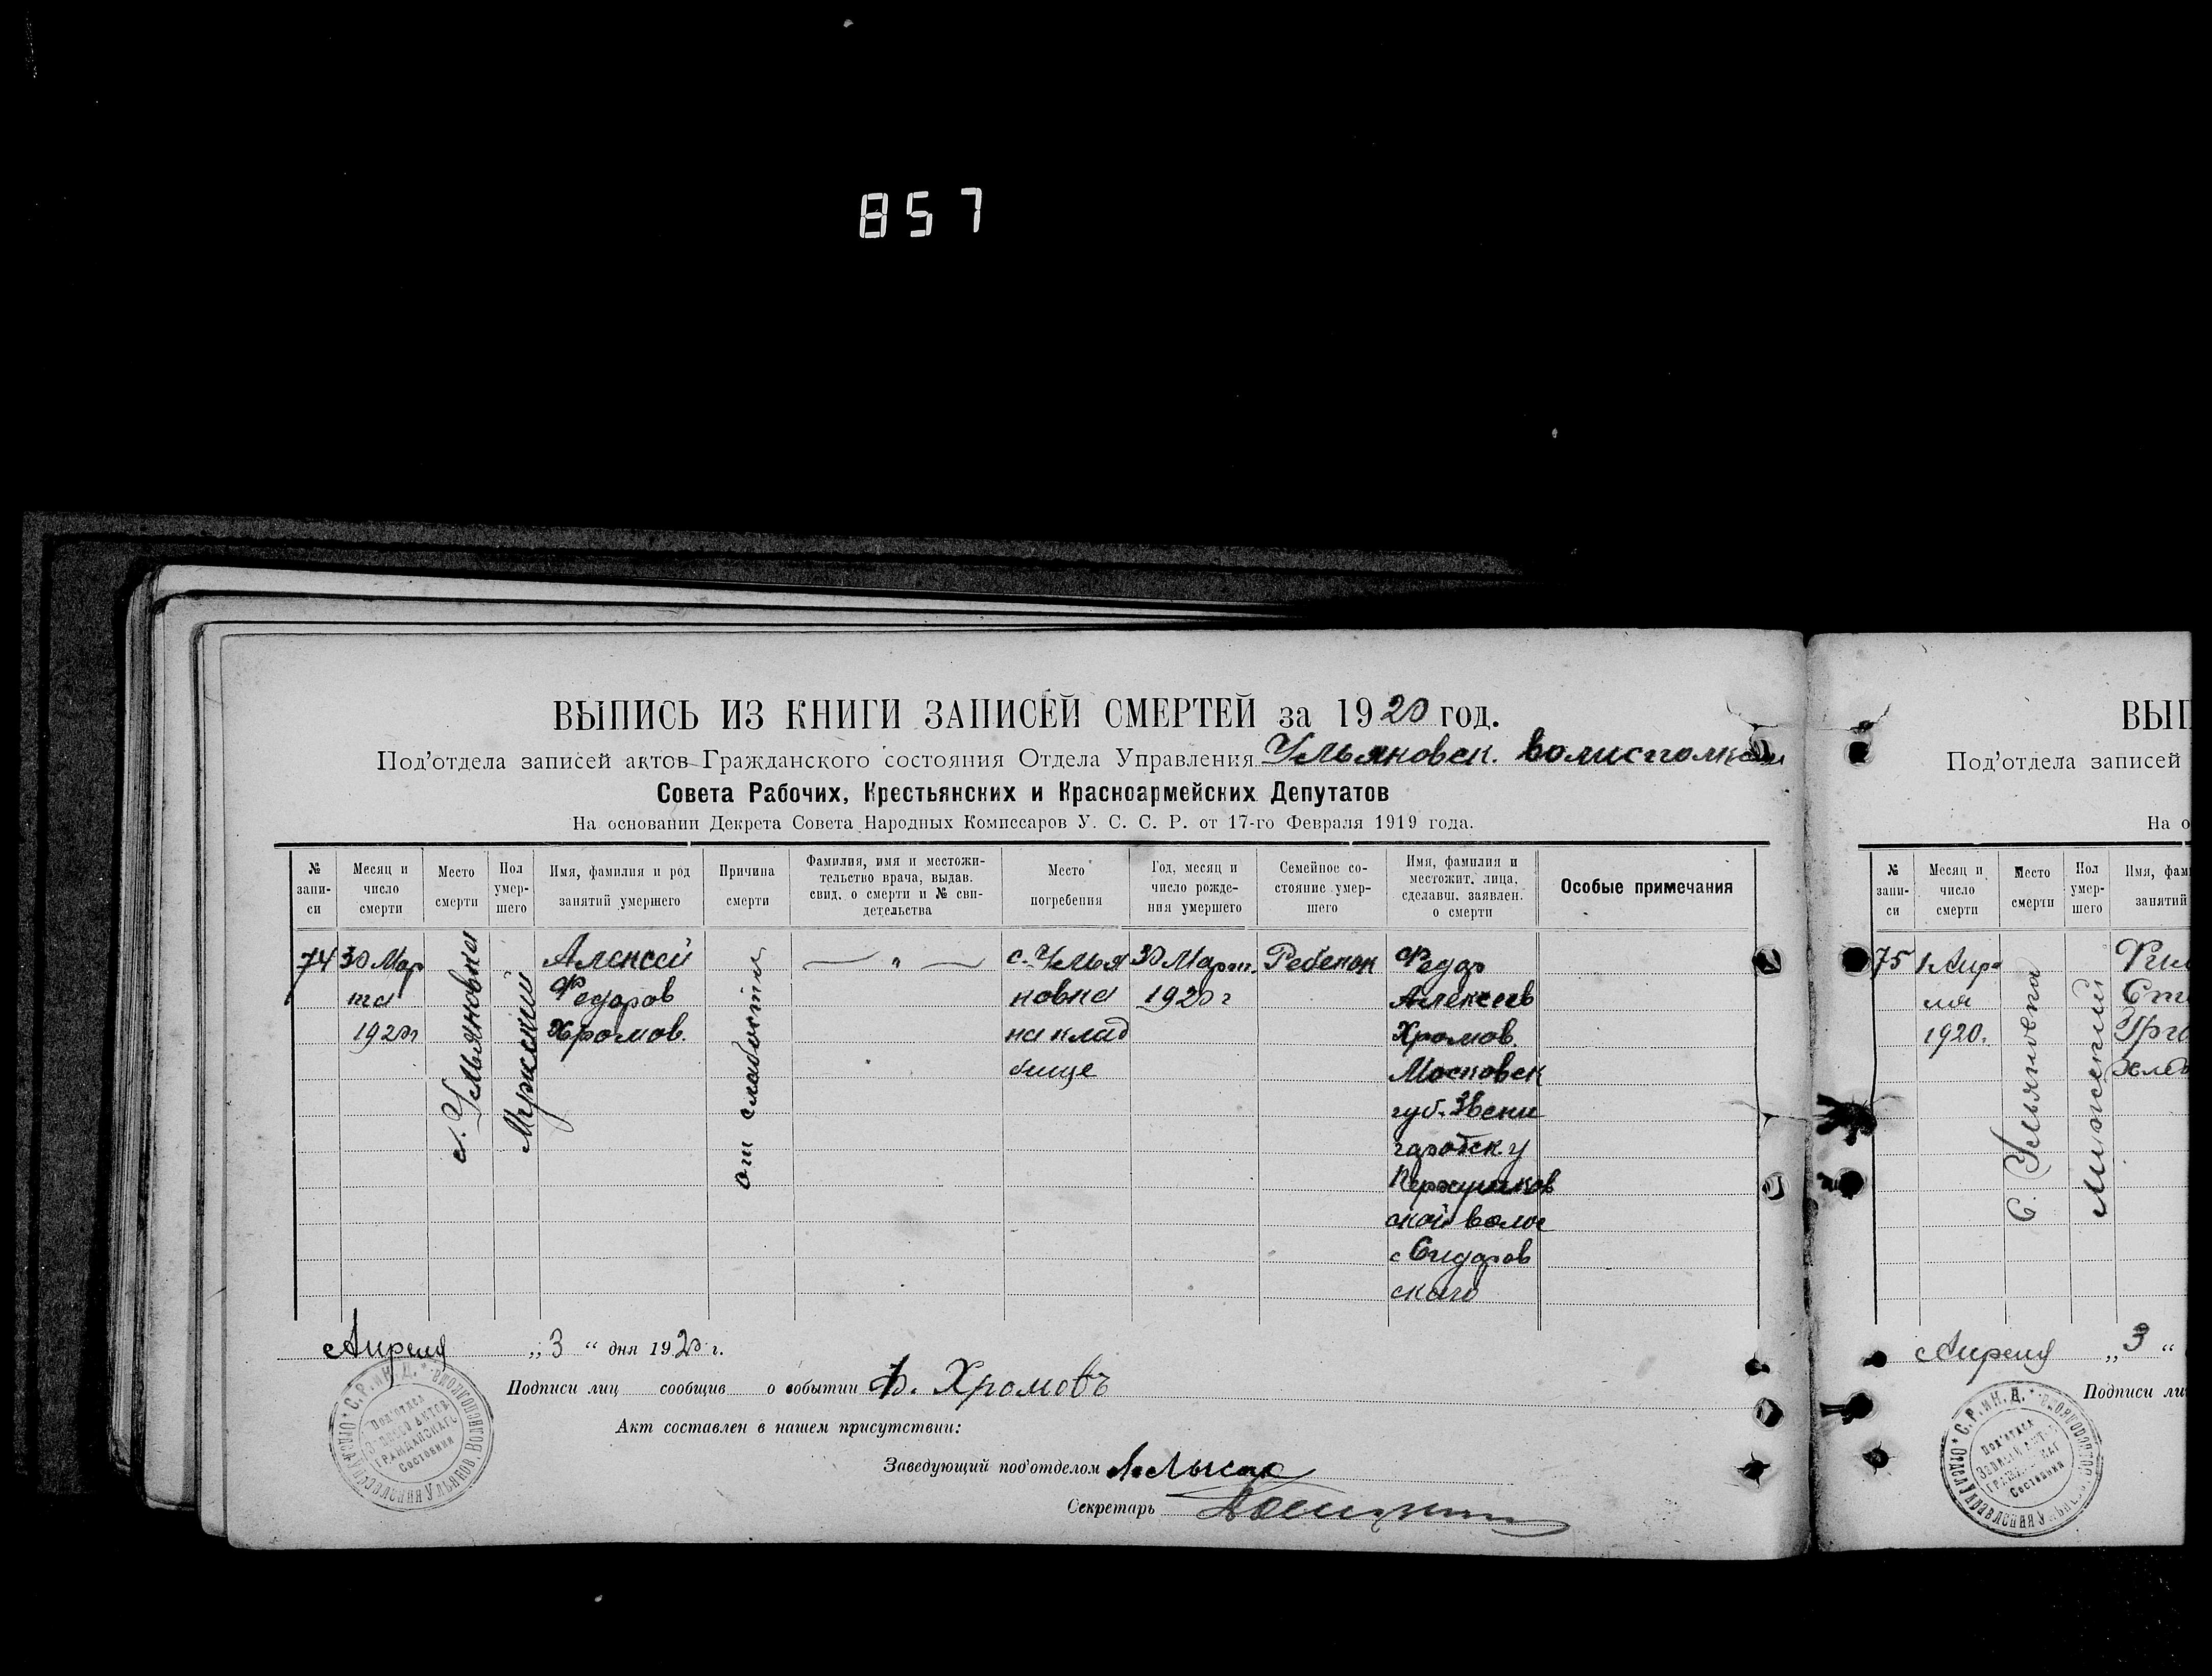 857
ВЫПИСЬ ИЗ КНИГИ ЗАПИСЕЙ СМЕРТЕЙ за 1920 год.
Под'отдела записей актов Гражданского состояния Отдела Управления Ульяновск. волисполком
Совета Рабочих, Крестьянских и Красноармейских Депутатов
На основании Декрета Совета Народных Комиссаров У. С. С. Р. от 17-го Февраля 1919 года.
№ запи-си
Месяц и число смерти
Место смерти
Пол умер-шего
Имя, фамилия и род занятий умершего
Причина смерти
Фамилия, имя и местожи-тельство врача, выдав. свид. о смерти и № сви-детельства
Место погребения
Год, месяц и число рожде-ния умершего
Семейное со-стояние умер-шего
Имя, фамилия и местожит. лица, сделавш. заявлен. о смерти
Особые примечания
74
30 Мар
та
1920г
с. Ульяновка
Мужской
Алексей
Федоров
Хромов.
от слабости
— " —
с. Улья
новка
на клад
бище
30 Март.
1920 г
Ребенок
Федор
Алексеев
Хромов.
Московск
губ. Звени
городск. у
Перхушков
ской волос
с Сидоров
ского
Апреля „ 3 “ дня 1920 г.
Подписи лиц сообщив о событии Ф. Хромовъ
Акт составлен в нашем присутствии:
Заведующий под'отделом
Секретарь
С. Р. и К. Д. * Отдел Управления Ульянов. Волисполкома
Под'отдел
Записей Актов
Гражданскаго
Состояния
ВЫП
Под'отдела записей
На о
№ запи-си
Месяц и число смерти
Место смерти
Пол умер-шего
Имя, фам
занятий
75
1 Апре
ля
1920.
с. Ульяновка
Мужский
Апреля „ 3 “
Подписи ли
Под'отдел
Состояния